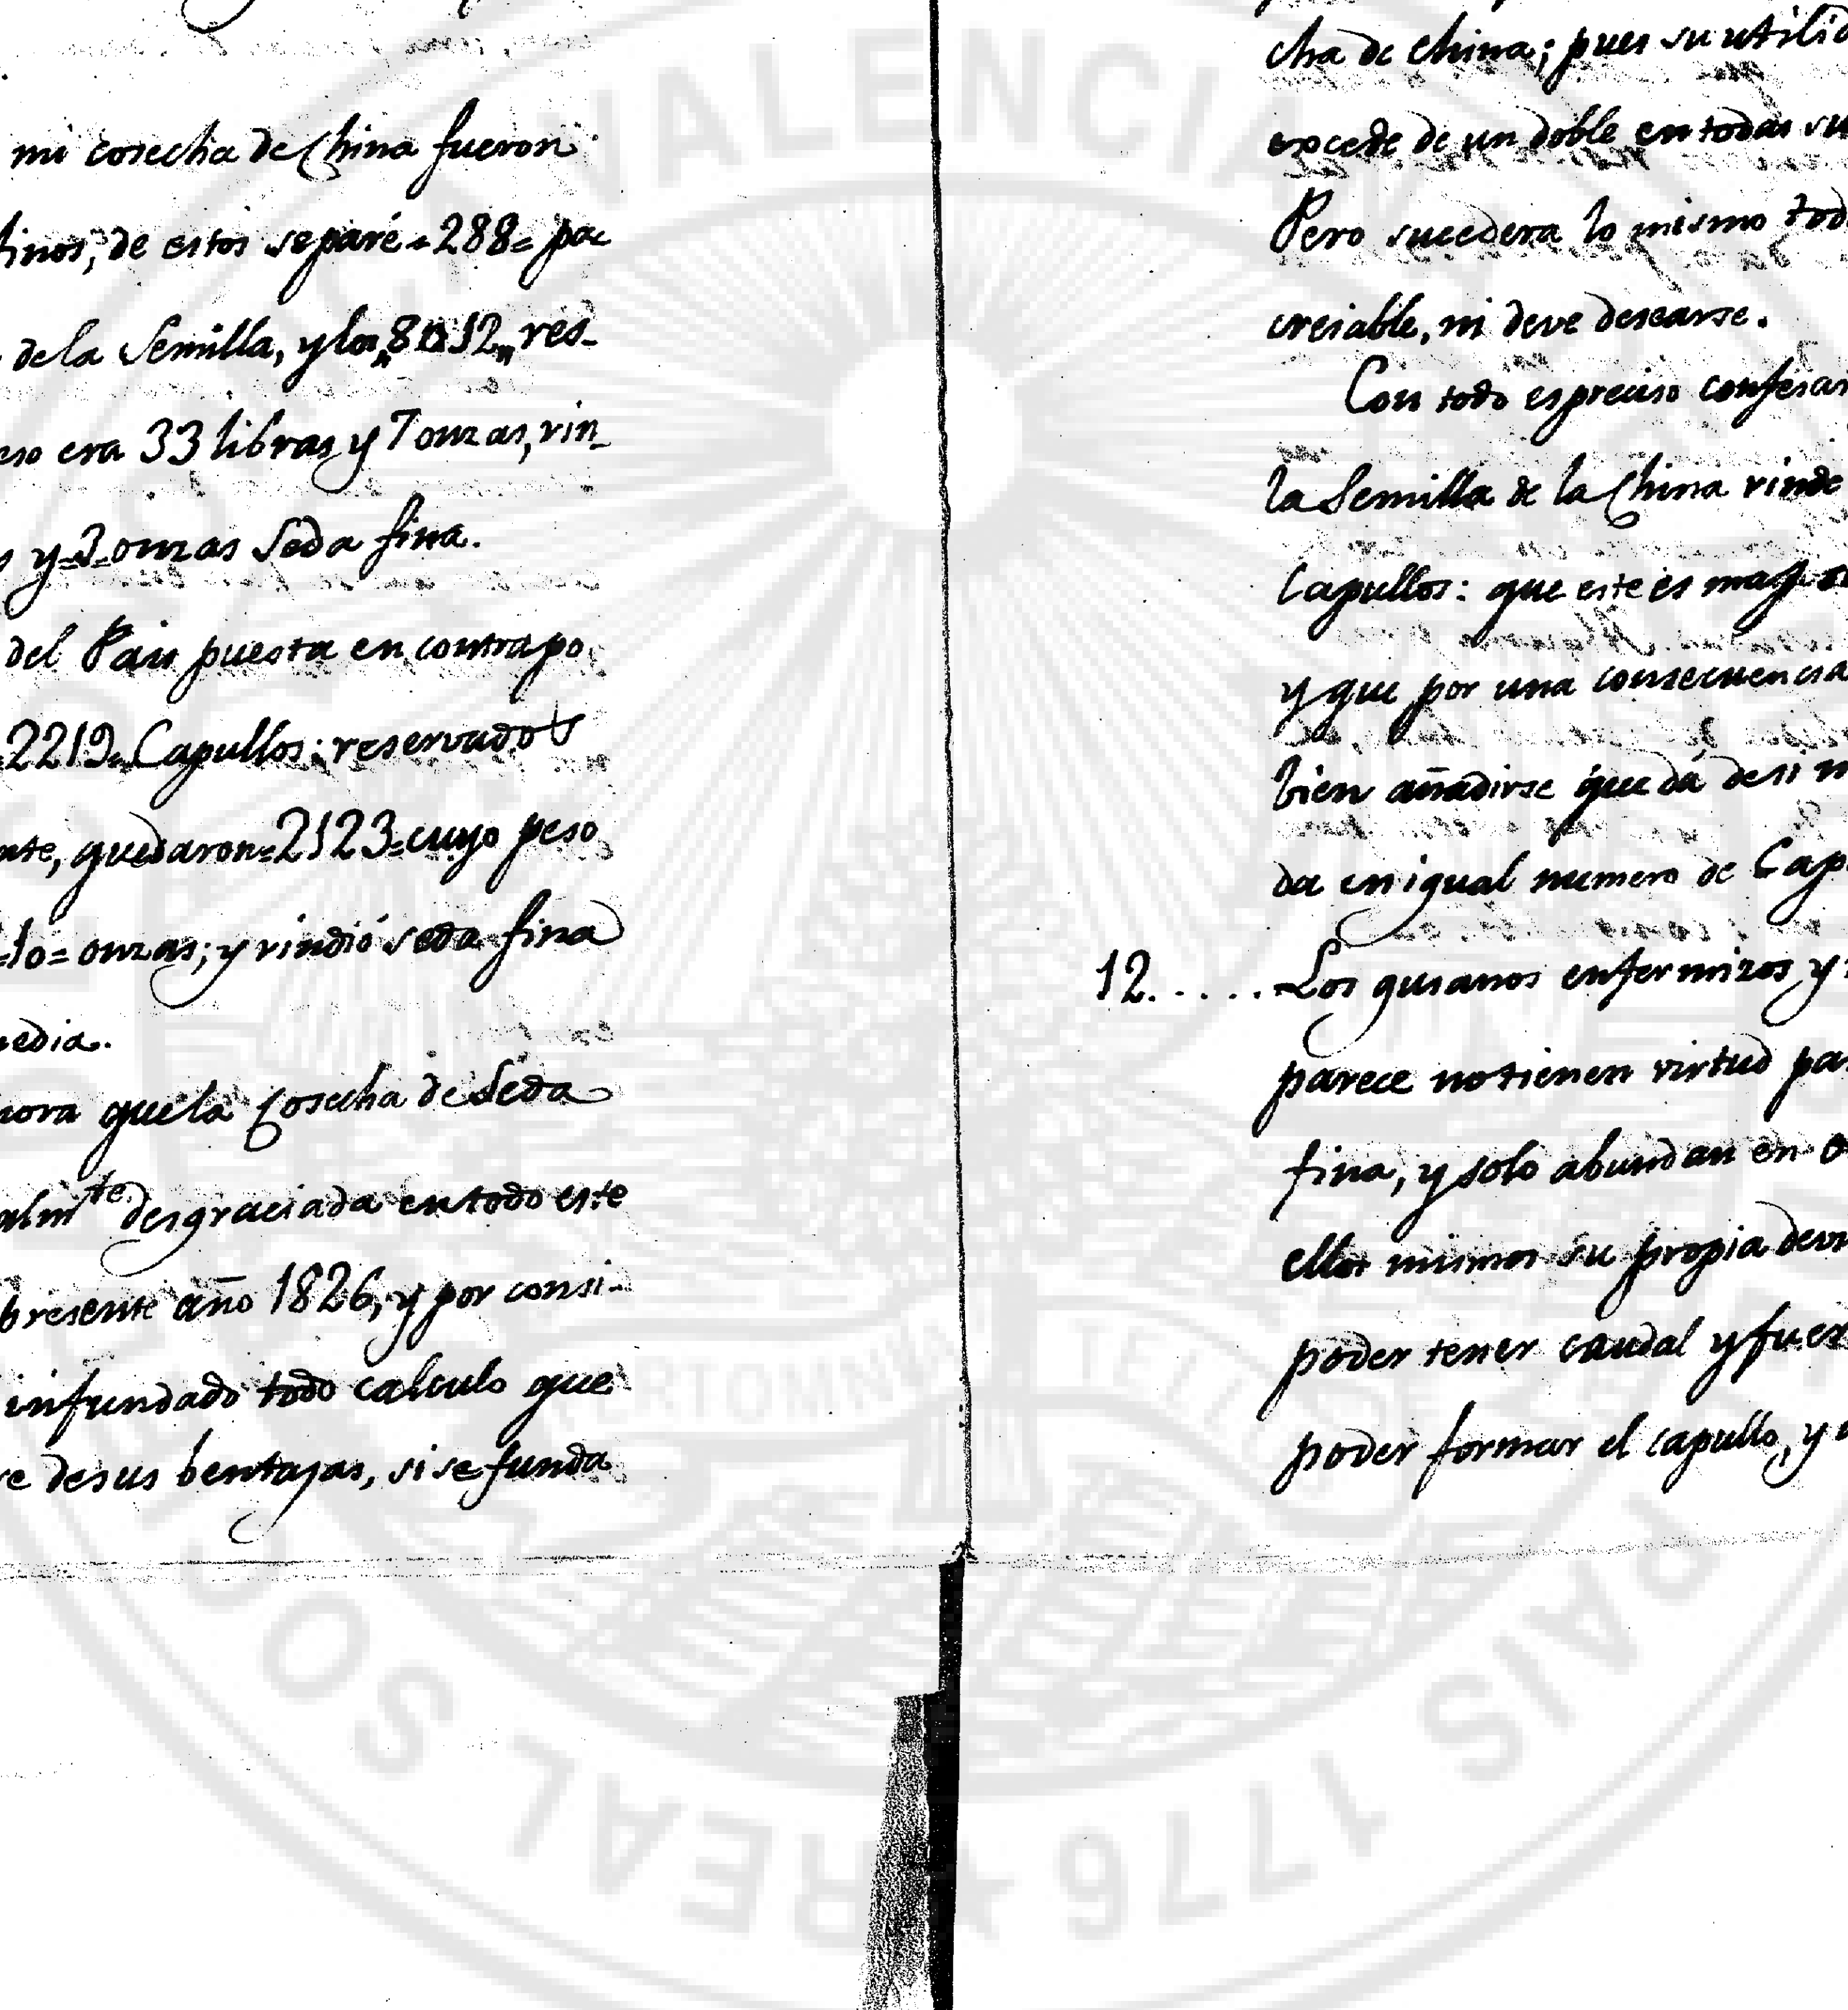 mi cosecha de China fueron
finos, de estos separé = 288 = pa
de la Semilla, y los res-
era 33 libras y 7 onzas, rin-
y = 3 = onzas Seda fina.
del Pais puesta en contrapo
2219 = Capullos; reservados
quedaron = 2123 = cuyo peso
= 10 = onzas; y rindió seda fina
media.
que la Cosecha de Seda
desgraciada en todo este
presente año 1826, y por consi-
infundado todo calculo que
de sus bentajas, si se funda
cha de China; pues su utilid
excede de un doble en todas su
Pero sucedera lo mismo tod
creiable, ni deve desearse.
Con todo es preciso confesar
la Semilla de la China rinde
Capullos: que este es mayor
y que por una consecuencia
bien añadirse que dá de si m
da en igual numero de Cap
12. . . . . . Los gusanos enfermizos y
parece no tienen virtud pa
fina, y solo abundan en
ellos mismos su propia
poder tener caudal y fuer
poder formar el capullo, y
VALENCIA
REAL SO
PAIS 1776